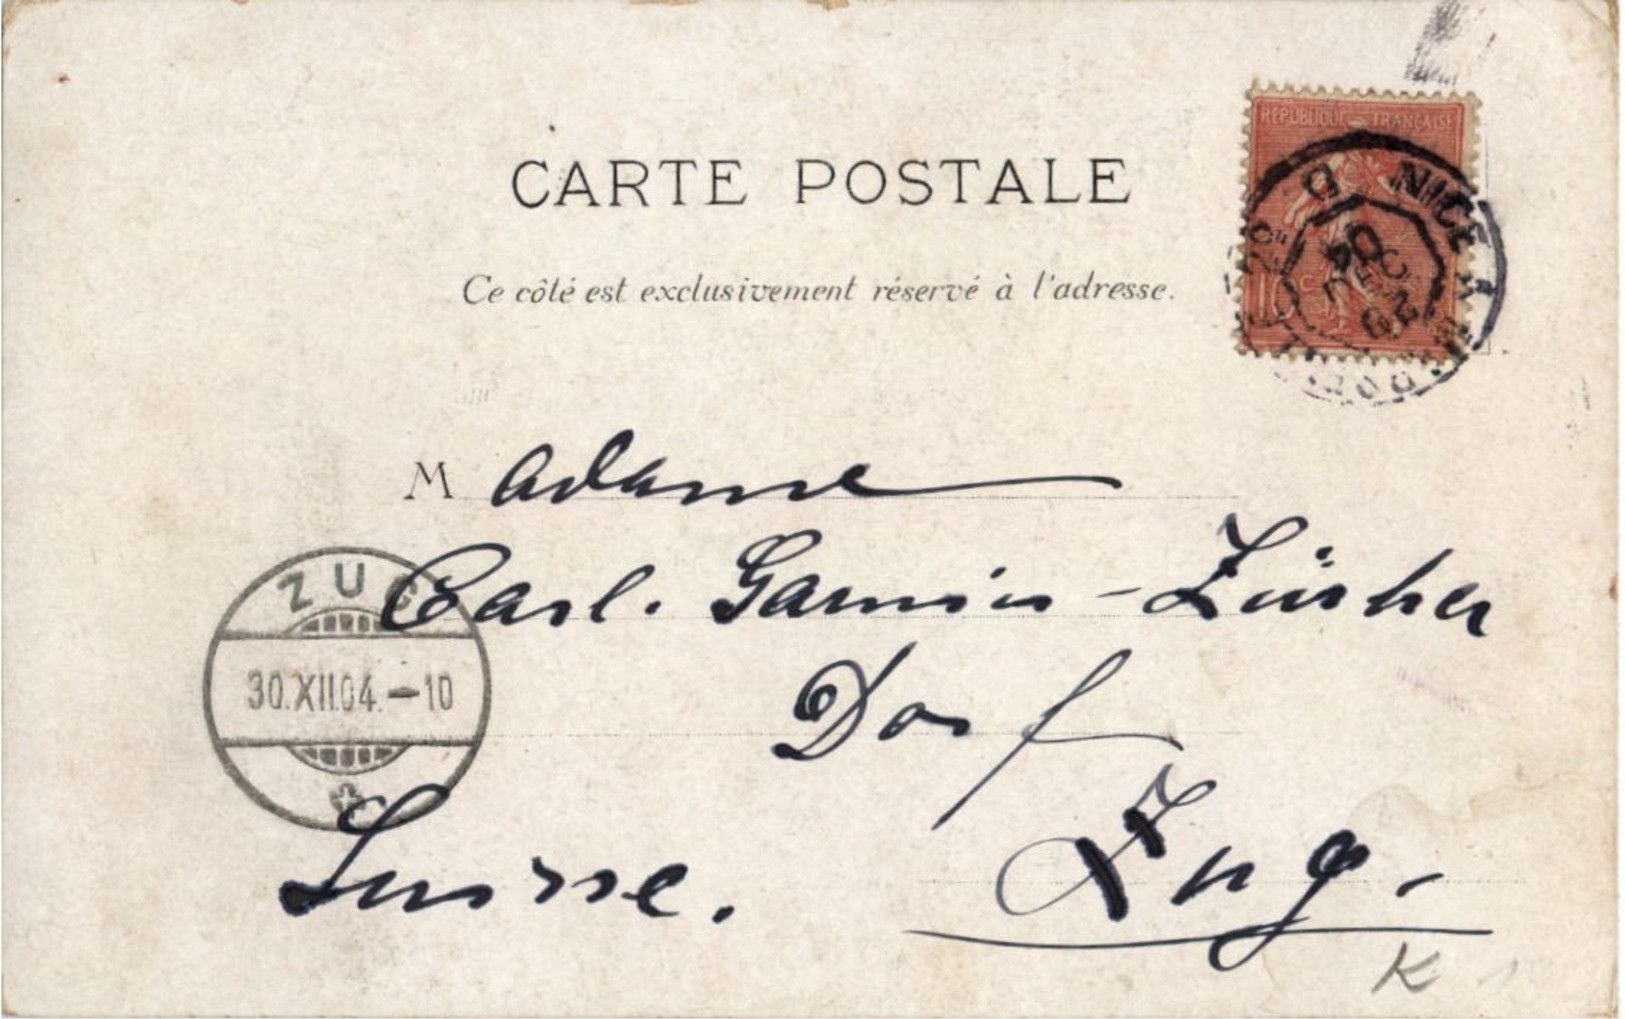 CARTE POSTALE
RÉPUBLIQUE FRANÇAISE
NICE
04
Ce côté est exclusivement réservé à l'adresse.
Madame
Carl. Garnin-Zürcher
ZUG
30.XII.04.-10
Dorf
Suisse.
Zug.
K